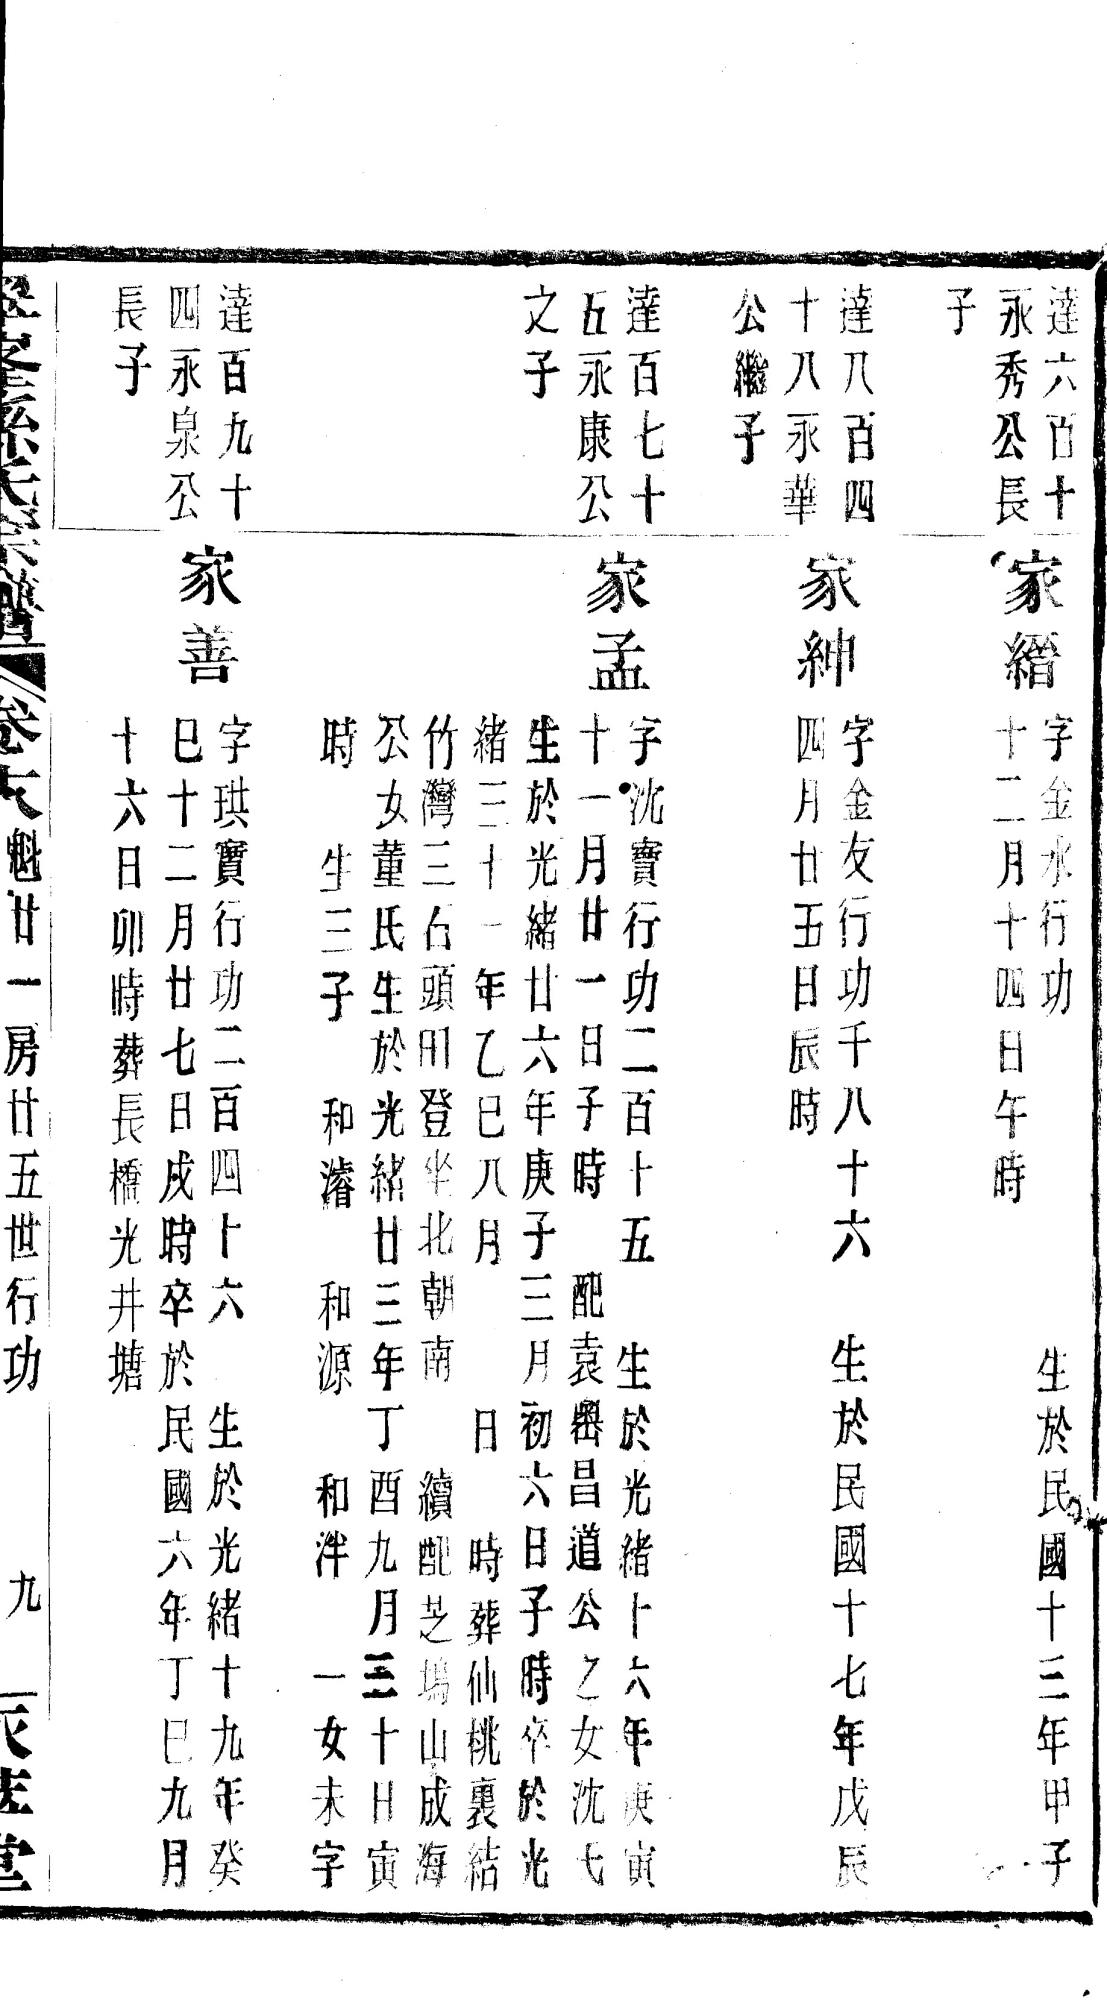 達六百十
永秀公長
子
家縉
字金水行功　生於民國十三年甲子
十二月十四日午時
達八百四
十八永華
公繼子
家紳
字金友行功千八十六　生於民國十七年戊辰
四月廿五日辰時
達百七十
五永康公
文子
家孟
字沈寶行功二百十五　生於光緒十六年庚寅
十一月廿一日子時　配袁嶴昌道公之女沈氏
生於光緒廿六年庚子三月初六日子時卒於光
緒三十一年乙巳八月　日　時葬仙桃裏結
竹灣三石頭明登坐北朝南　續配芝塢山成海
公女董氏生於光緒廿三年丁酉九月三十日寅
時　生三子　和濬　和源　和泮　一女未字
達百九十
四永泉公
長子
家善
字琪寶行功二百四十六　生於光緒十九年癸
巳十二月廿七日戌時卒於民國六年丁巳九月
十六日卯時葬長橋光井塘
孫氏宗譜　卷　魁廿一房廿五世行功　九　堂